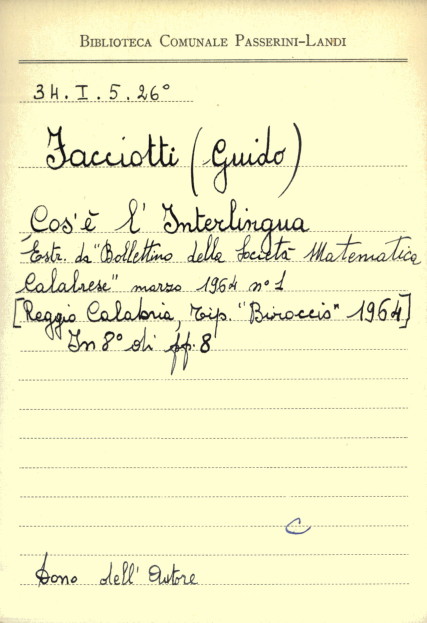 BIBLIOTECA COMUNALE PASSERINI-LANDI
34.I.5.26°
Facciotti (Guido)
Cos'è l'Interlingua
Estr. da "Bollettino della Società Matematica
Calabrese" marzo 1964 n° 1
[Reggio Calabria, Tip. "Biroccio" 1964]
In 8° di ff. 8
C
Dono dell'Autore